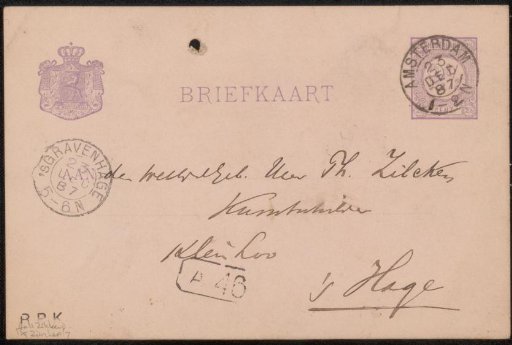 BRIEFKAART
AMSTERDAM
87
1-2N
'sGRAVENHAGE
23
87
5-6N
den Heer Th. Zilcken
Kunstschilder
Klein Loo
's Hage
P 46
R.P.K.